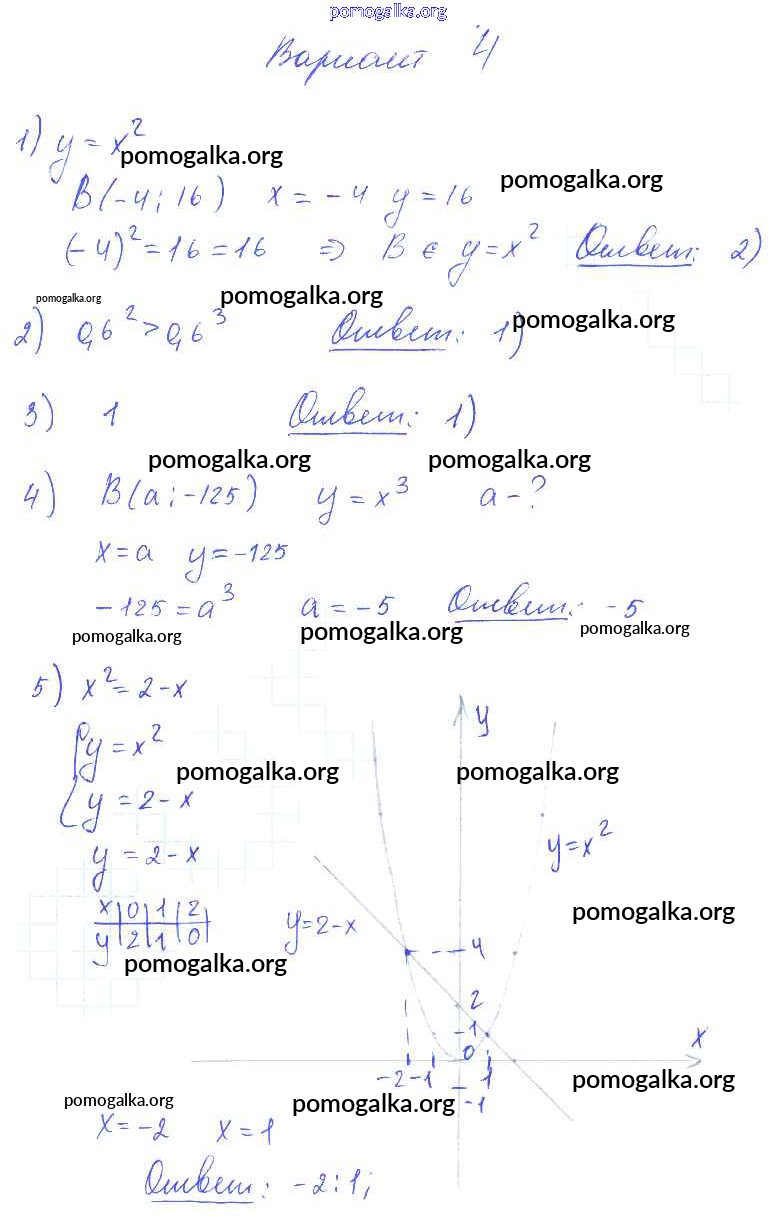 pomogalka.org
Вариант 4
1) y = x²
pomogalka.org
pomogalka.org
B(-4; 16) x = -4 y = 16
(-4)² = 16 = 16 ⇒ B ∈ y = x² Ответ: 2)
pomogalka.org pomogalka.org
2) 0,6² > 0,6³ Ответ: 1)
pomogalka.org
3) 1 Ответ: 1)
pomogalka.org pomogalka.org
4) B(a; -125) y = x³ a - ?
x = a y = -125
-125 = a³ a = -5 Ответ: -5
pomogalka.org pomogalka.org pomogalka.org
5) x² = 2 - x
y
y = x²
pomogalka.org pomogalka.org
y = 2 - x
y = x²
y = 2 - x
x 0 1 2
y 2 1 0
y = 2 - x
pomogalka.org
pomogalka.org
4
2
1
x
0
-2 -1 1
pomogalka.org
-1
pomogalka.org pomogalka.org
x = -2 x = 1
Ответ: -2; 1;